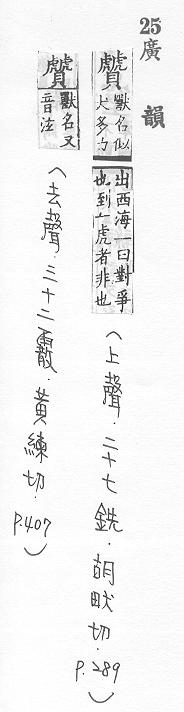 25 廣韻
贙
獸名似
犬多力
出西海一曰對爭
也到一虎者非也
(上聲．二十七銑．胡畎切．P.289)
贙
獸名又
音泫
(去聲．三十二霰．黃練切．P.407)